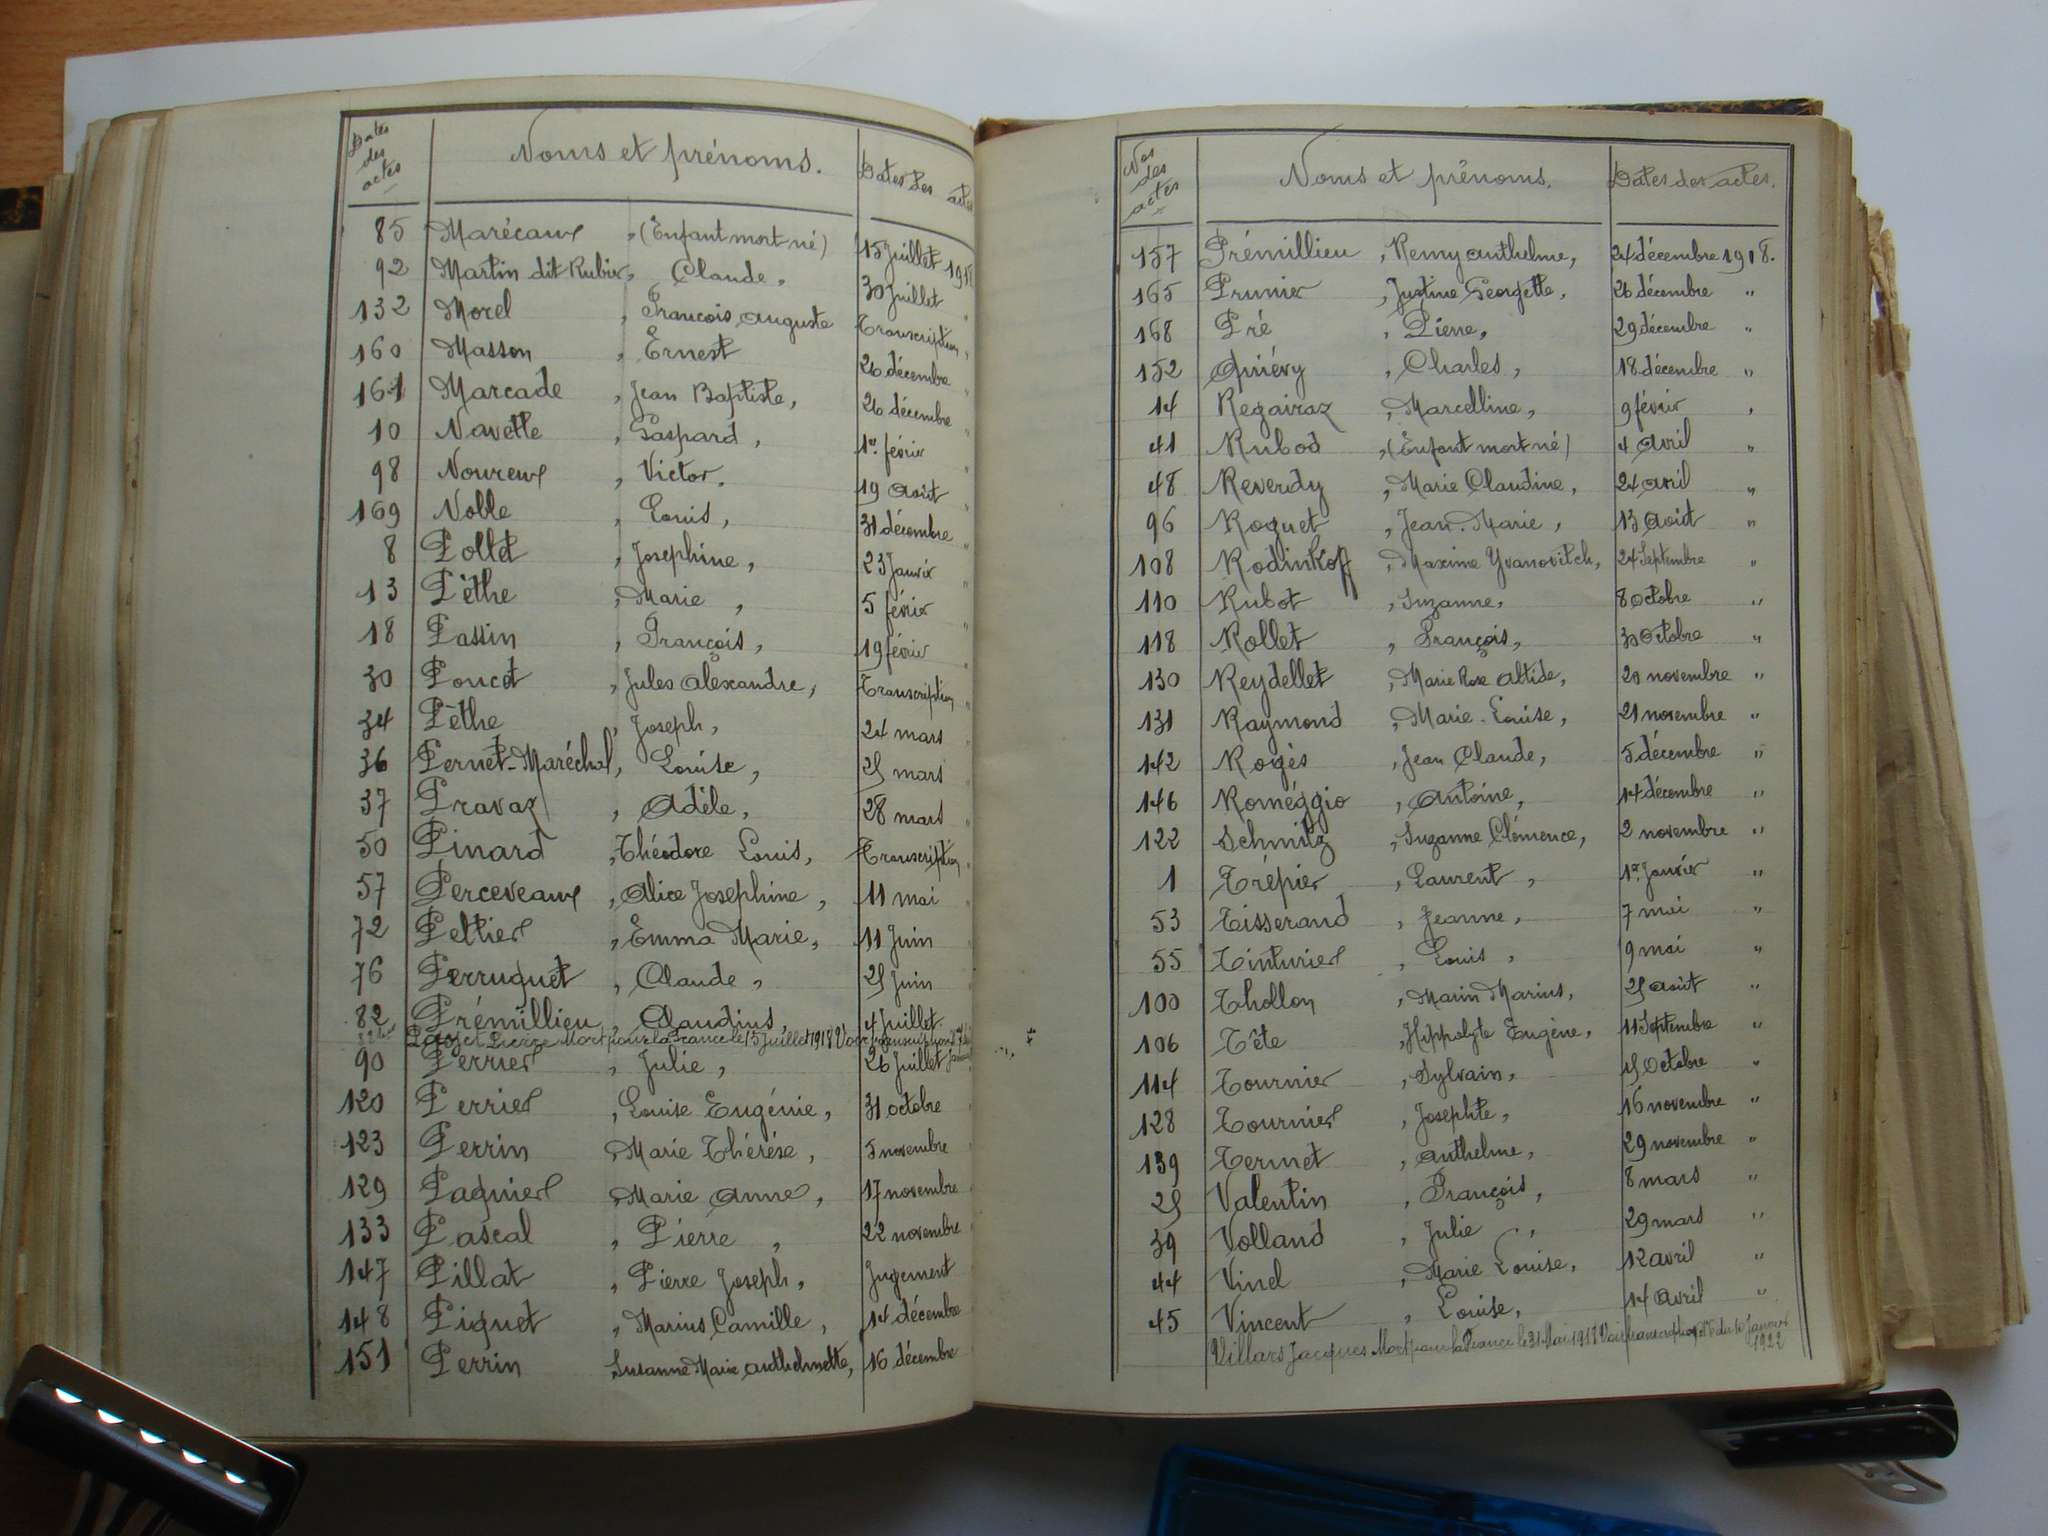 Dates des actes | Noms et prénoms. | Dates des actes
85 Marécaux, (Enfant mort né) 15 Juillet 1918
92 Martin dit Rubin, Claude, 30 Juillet "
132 Morel, François auguste Transcription "
160 Masson, Ernest 26 décembre "
161 Marcade, Jean Baptiste, 26 décembre "
10 Navette, Gaspard, 1er février "
98 Noureux, Victor, 19 Août "
169 Noble, Louis, 31 décembre "
8 Pollet, Josephine, 23 Janvier "
13 Pèthe, Marie, 5 février "
18 Passin, François, 19 février "
30 Poncet, Jules Alexandre, Transcription "
34 Pèthe, Joseph, 24 mars "
36 Pernet-Maréchal, Louise, 25 mars "
37 Pravaz, Adèle, 28 mars "
50 Pinard, Théodore Louis, Transcription "
57 Perceveaux, Alice Josephine, 11 mai
72 Peltier, Emma Marie, 11 Juin
76 Perruquet, Claude, 25 Juin
82 Prémillieu, Claudius, 4 Juillet
Pierre Mort pour la France le 15 Juillet 1918 Voir transcription
90 Perrier, Julie, 26 Juillet
120 Perrier, Louise Eugénie, 31 octobre
123 Perrin, Marie Thérèse, 5 novembre
129 Pagnier, Marie Anne, 17 novembre
133 Pascal, Pierre, 22 novembre
147 Pillat, Pierre Joseph, Jugement
148 Piquet, Marius Camille, 14 décembre
151 Perrin Suzanne Marie anthelmette, 16 décembre
Nos des actes | Noms et prénoms. | Dates des actes.
157 Prémillieu, Remy anthelme, 24 décembre 1918.
165 Prunier, Justine Georgette, 26 décembre "
168 Pré, Pierre, 29 décembre "
152 Quiévy, Charles, 18 décembre "
14 Regairaz, Marcelline, 9 février "
41 Rubod, (Enfant mort né) 4 Avril "
48 Reverdy, Marie Claudine, 24 avril "
96 Roquet, Jean-Marie, 13 Août "
108 Rodinkoff, Maxime Yvanovitch, 24 Septembre "
110 Rubot, Suzanne, 8 Octobre "
118 Rollet, François, 30 Octobre "
130 Reydellet, Marie Rose Altide, 20 novembre "
131 Raymond, Marie-Louise, 21 novembre "
142 Rogès, Jean Claude, 5 décembre "
146 Roméggio, Antoine, 14 décembre "
122 Schmitz, Suzanne Clémence, 2 novembre "
1 Trépier, Laurent, 1er Janvier "
53 Tisserand, Jeanne, 7 mai "
55 Tinturier, Louis, 9 mai "
100 Thollon, Marin Marius, 25 Août "
106 Tête, Hippolyte Eugène, 11 Septembre "
114 Tournier, Sylvain, 15 Octobre "
128 Tournier, Josephte, 16 novembre "
139 Termet, Anthelme, 29 novembre "
25 Valentin, François, 8 mars "
39 Volland, Julie, 29 mars "
44 Vinel, Marie Louise, 12 avril "
45 Vincent, Louise, 14 Avril "
Villars Jacques Mort pour la France le 31 Mai 1918 Voir transcription du 10 Janvier
1922